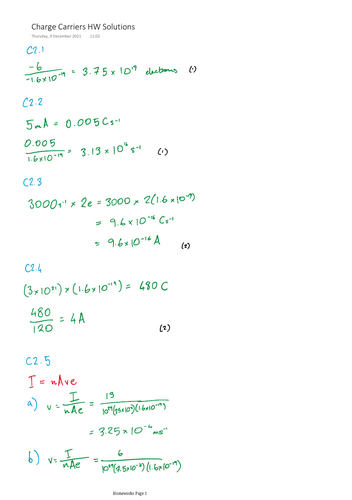 Charge Carriers HW Solutions
Thursday, 9 December 2021 11:03
C2.1
-6 / -1.6×10⁻¹⁹ = 3.75 × 10¹⁹ electrons (1)
C2.2
5mA = 0.005 Cs⁻¹
0.005 / 1.6×10⁻¹⁹ = 3.13 × 10¹⁶ s⁻¹ (1)
C2.3
3000s⁻¹ × 2e = 3000 × 2(1.6×10⁻¹⁹)
= 9.6×10⁻¹⁶ Cs⁻¹
= 9.6×10⁻¹⁶ A (2)
C2.4
(3×10²¹) × (1.6×10⁻¹⁹) = 480 C
480 / 120 = 4A (2)
C2.5
I = nAve
a) v = I / nAe = 13 /
= 3.25 × 10⁻⁴ ms⁻¹
b) v = I / nAe = 6 /
Homeworks Page 1